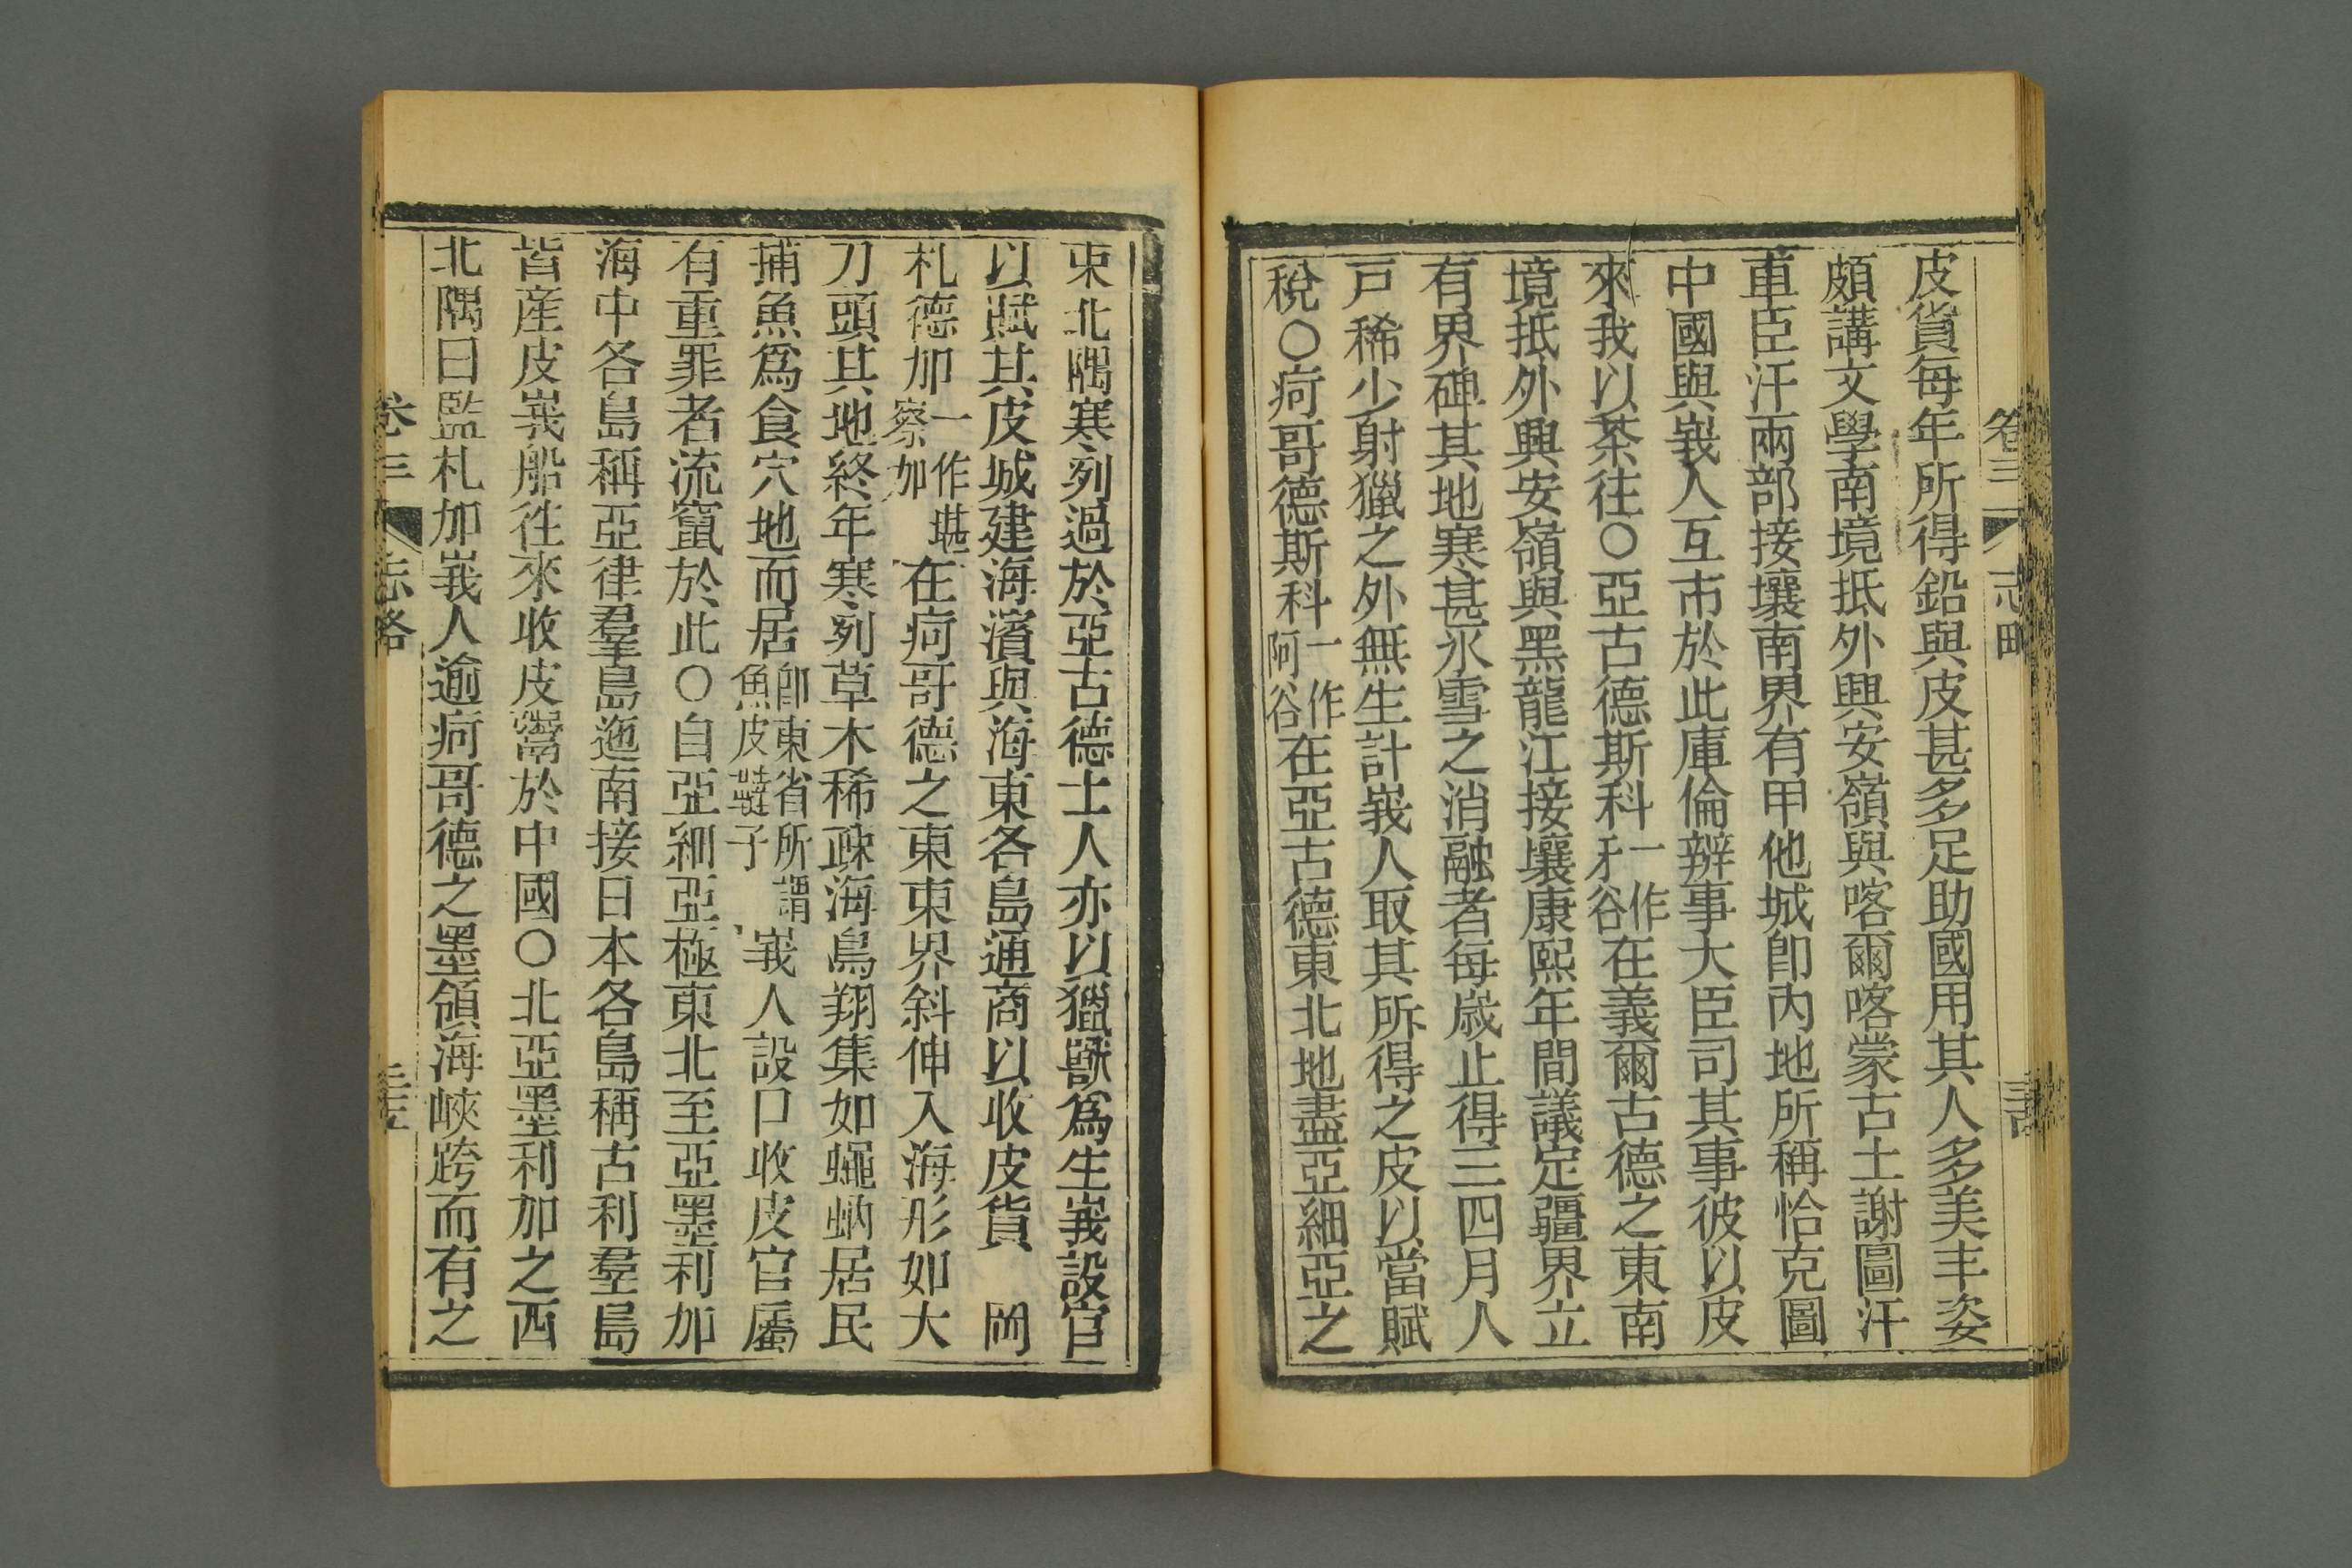 皮貨每年所得鉛與皮甚多足助國用其人多美丰姿
頗講文學南境抵外興安嶺與喀爾喀蒙古土謝圖汗
車臣汗兩部接壤南界有甲他城卽內地所稱恰克圖
中國與峩人互市於此庫倫辨事大臣司其事彼以皮
來我以茶往○亞古德斯科一作牙谷在義爾古德之東南
境抵外興安嶺與黑龍江接壤康熙年間議定疆界立
有界碑其地寒甚氷雪之消融者每歲止得三四月人
戸稀少射獵之外無生計峩人取其所得之皮以當賦
稅○疴哥德斯科一作阿谷在亞古德東北地盡亞細亞之
卷三
志略
東北隅寒列過於亞古德土人亦以獵獸爲生峩設官
以賦其皮城建海濱與海東各島通商以收皮貨 岡
札德加一作堪察加在疴哥德之東東界斜伸入海形如大
刀頭其地終年寒列草木稀疎海鳥翔集如蠅蚋居民
捕魚爲食穴地而居卽東省所謂魚皮韃子峩人設口收皮官屬
有重罪者流竄於此○自亞細亞極東北至亞墨利加
海中各島稱亞律羣島迤南接日本各島稱古利羣島
皆產皮峩船往來收皮鬻於中國○北亞墨利加之西
北隅曰監札加峩人逾疴哥德之墨領海峽跨而有之
卷三
志略